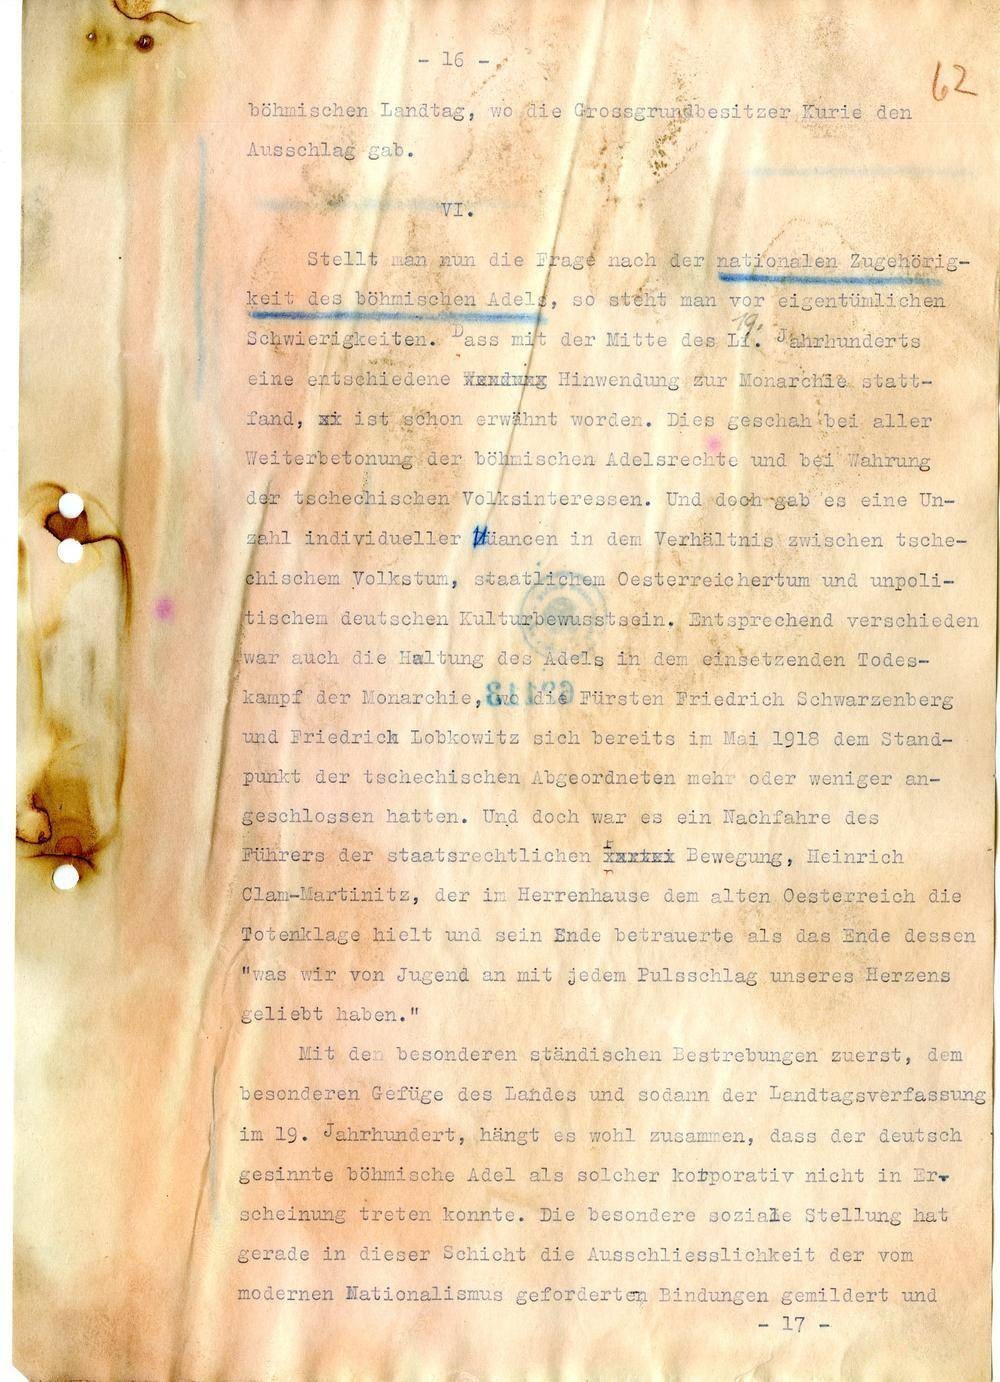 - 16 -
62
böhmischen Landtag, wo die Grossgrundbesitzer Kurie den
Ausschlag gab.
VI.
Stellt man nun die Frage nach der nationalen Zugehörig-
keit des böhmischen Adels, so steht man vor eigentümlichen
19.
Schwierigkeiten. Dass mit der Mitte des Jahrhunderts
eine entschiedene Hinwendung zur Monarchie statt-
fand, ist schon erwähnt worden. Dies geschah bei aller
Weiterbetonung der böhmischen Adelsrechte und bei Wahrung
der tschechischen Volksinteressen. Und doch gab es eine Un-
zahl individueller Nüancen in dem Verhältnis zwischen tsche-
chischem Volkstum, staatlichem Oesterreichertum und unpoli-
tischem deutschen Kulturbewusstsein. Entsprechend verschieden
war auch die Haltung des Adels in dem einsetzenden Todes-
kampf der Monarchie, wo die Fürsten Friedrich Schwarzenberg
und Friedrich Lobkowitz sich bereits im Mai 1918 dem Stand-
punkt der tschechischen Abgeordneten mehr oder weniger an-
geschlossen hatten. Und doch war es ein Nachfahre des
Führers der staatsrechtlichen Bewegung, Heinrich
Clam-Martinitz, der im Herrenhause dem alten Oesterreich die
Totenklage hielt und sein Ende betrauerte als das Ende dessen
"was wir von Jugend an mit jedem Pulsschlag unseres Herzens
geliebt haben."
Mit den besonderen ständischen Bestrebungen zuerst, dem
besonderen Gefüge des Landes und sodann der Landtagsverfassung
im 19. Jahrhundert, hängt es wohl zusammen, dass der deutsch
gesinnte böhmische Adel als solcher korporativ nicht in Er-
scheinung treten konnte. Die besondere soziale Stellung hat
gerade in dieser Schicht die Ausschliesslichkeit der vom
modernen Nationalismus geforderten Bindungen gemildert und
- 17 -